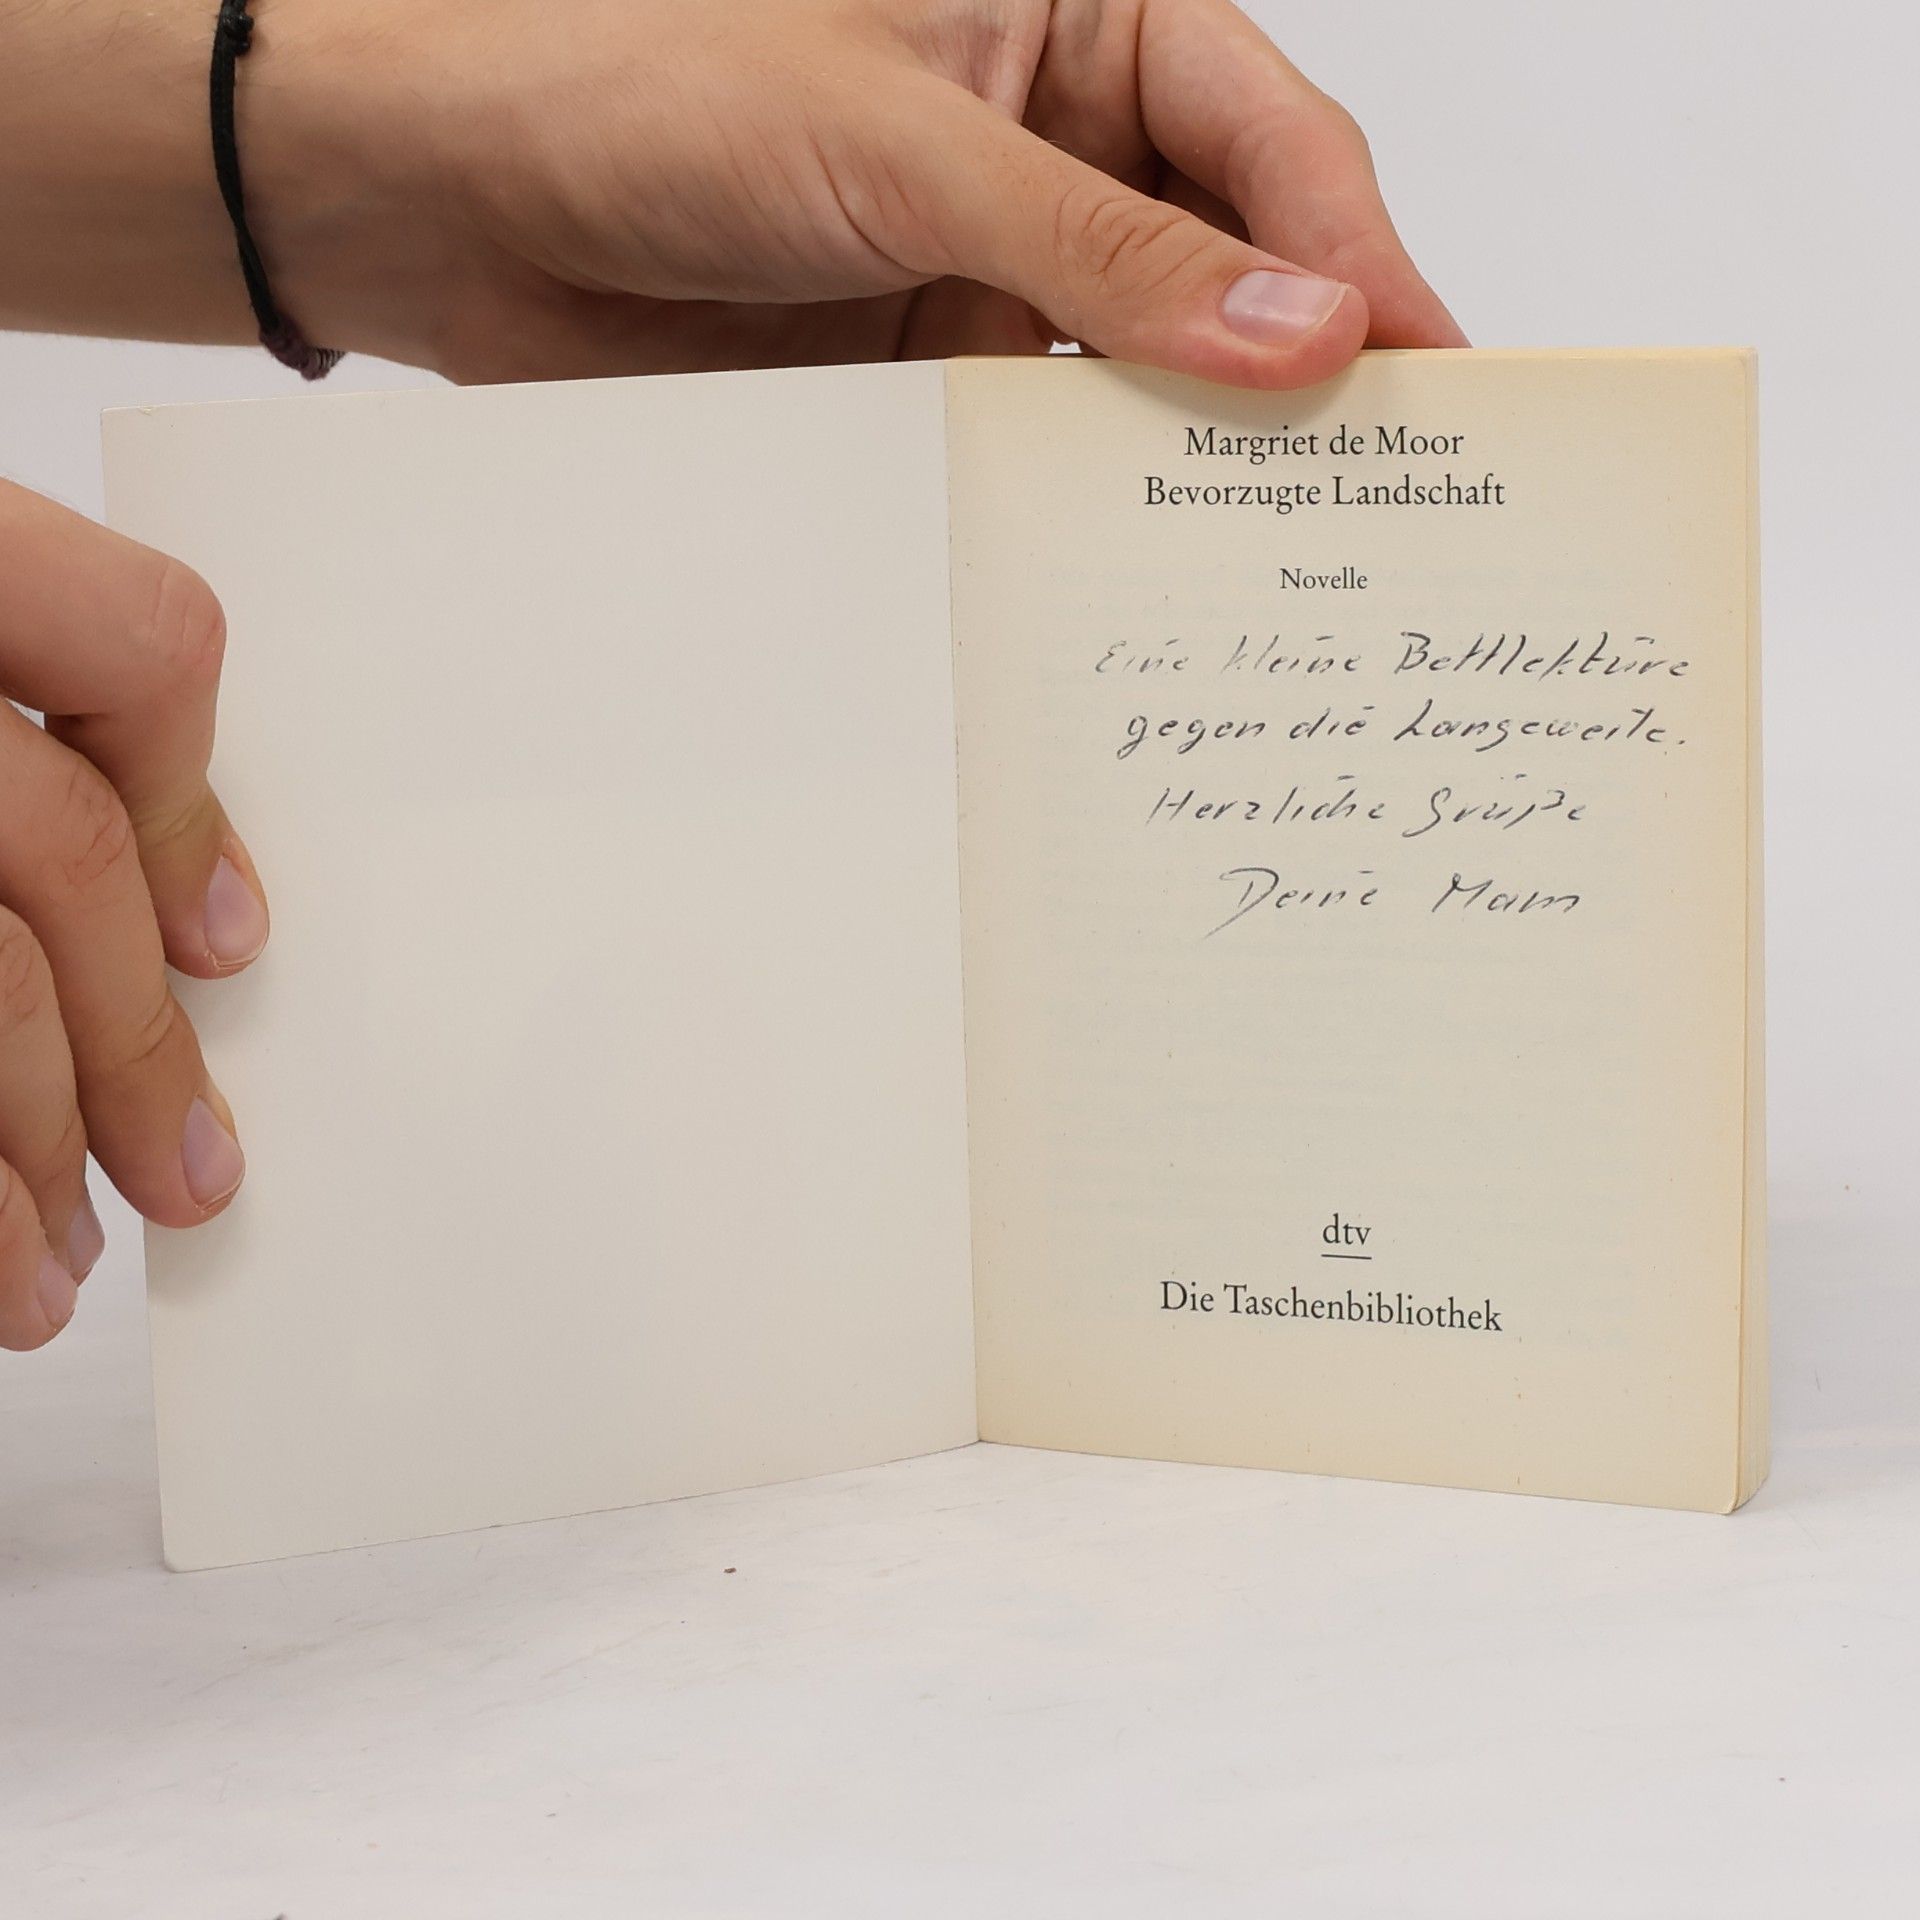 Margriet de Moor
Bevorzugte Landschaft
Novelle
Eine kleine Bettlektüre
gegen die Langeweile.
Herzliche Grüße
Deine Mam
dtv
Die Taschenbibliothek